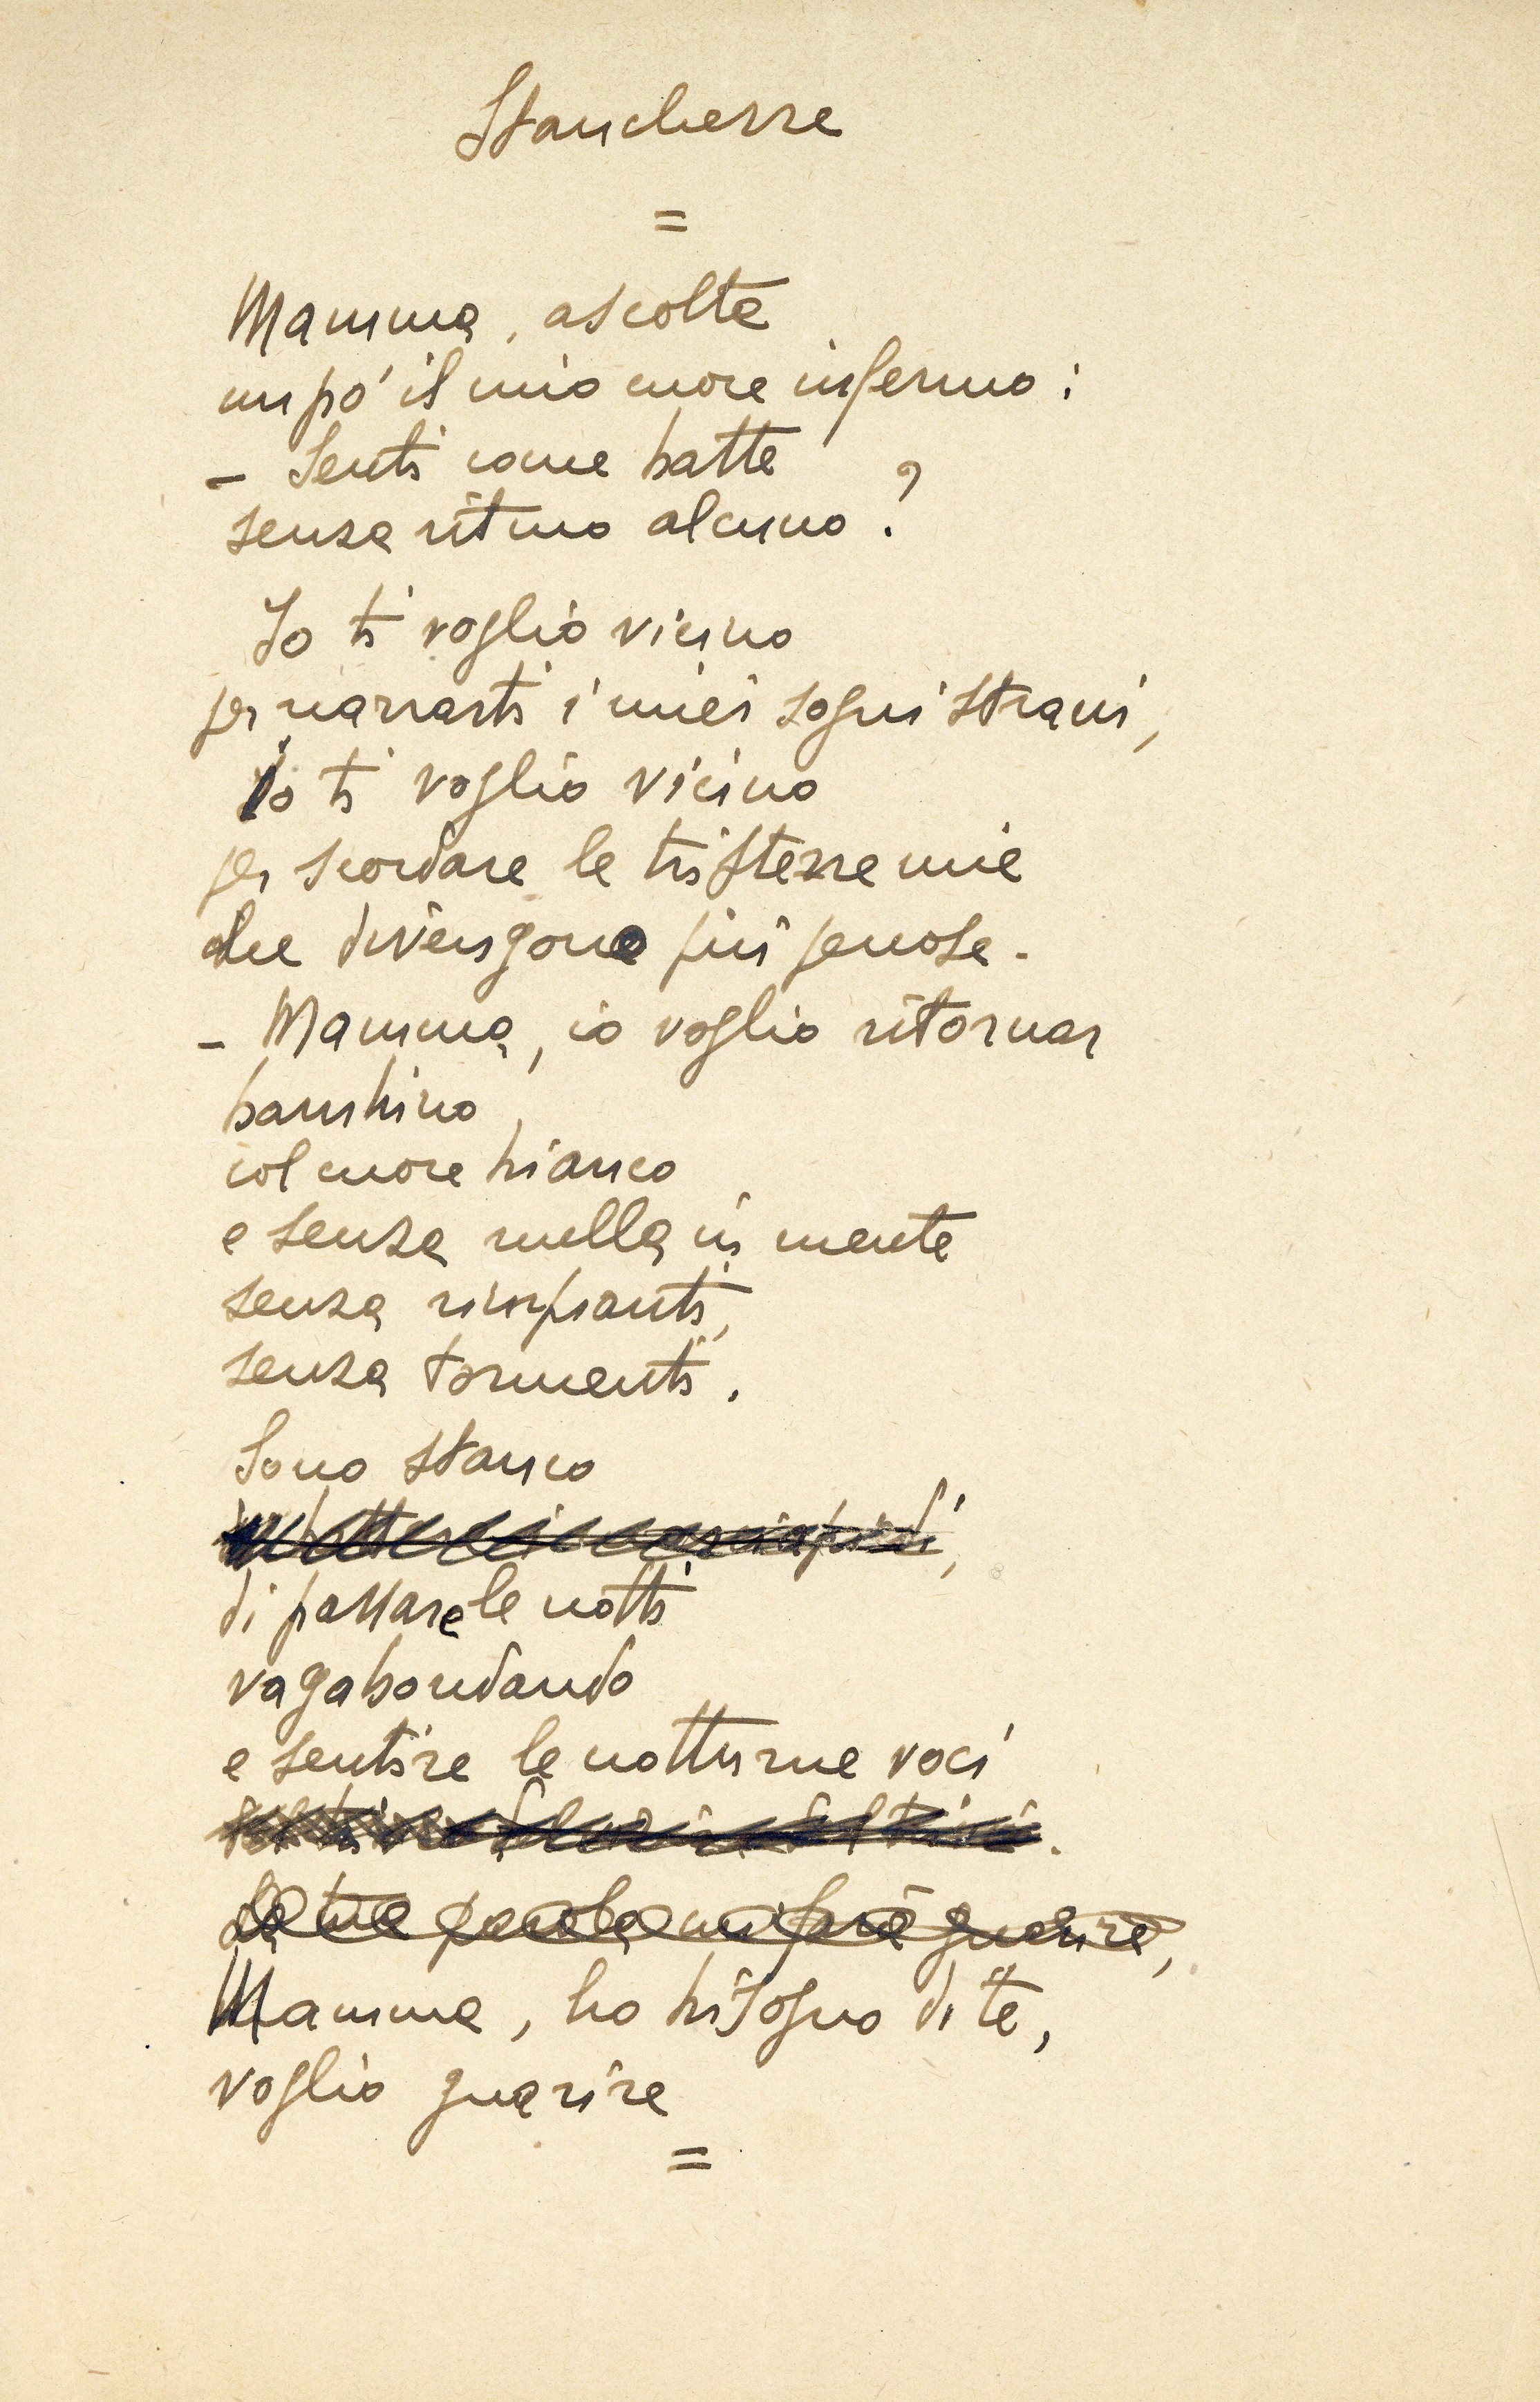 Stanchezze
=
Mamma, ascolta
un po' il mio cuore infermo:
- Senti come batte
senza ritmo alcuno?
Io ti voglio vicino
per narrarti i miei sogni strani,
io ti voglio vicino
per scordare le tristezze mie
che divengono più penose.
- Mamma, io voglio ritornar
bambino
col cuore bianco
e senza nulla in mente
senza rimpianti,
senza tormenti.
Sono stanco
di passare le notti
vagabondando
e sentire le notturne voci
La tua parola mi farà guarire,
Mamma, ho bisogno di te,
voglio guarire
=